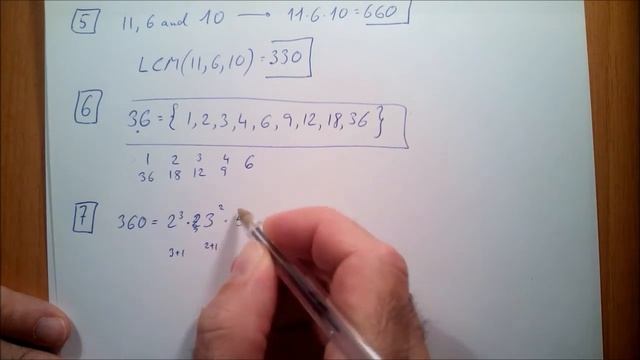 5 11, 6 and 10 → 11·6·10 = 660
LCM(11,6,10) = 330
6 36 = { 1, 2, 3, 4, 6, 9, 12, 18, 36 }
1 2 3 4 6
36 18 12 9
7 360 = 2³ · 3² ·
3+1 2+1